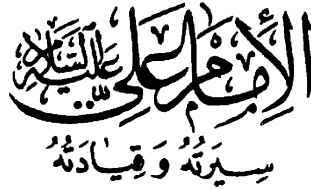 الإِمَامُ عَلِيّ عَلَيْهِ السَّلَامُ
سِيرَتُهُ وَقِيَادَتُهُ